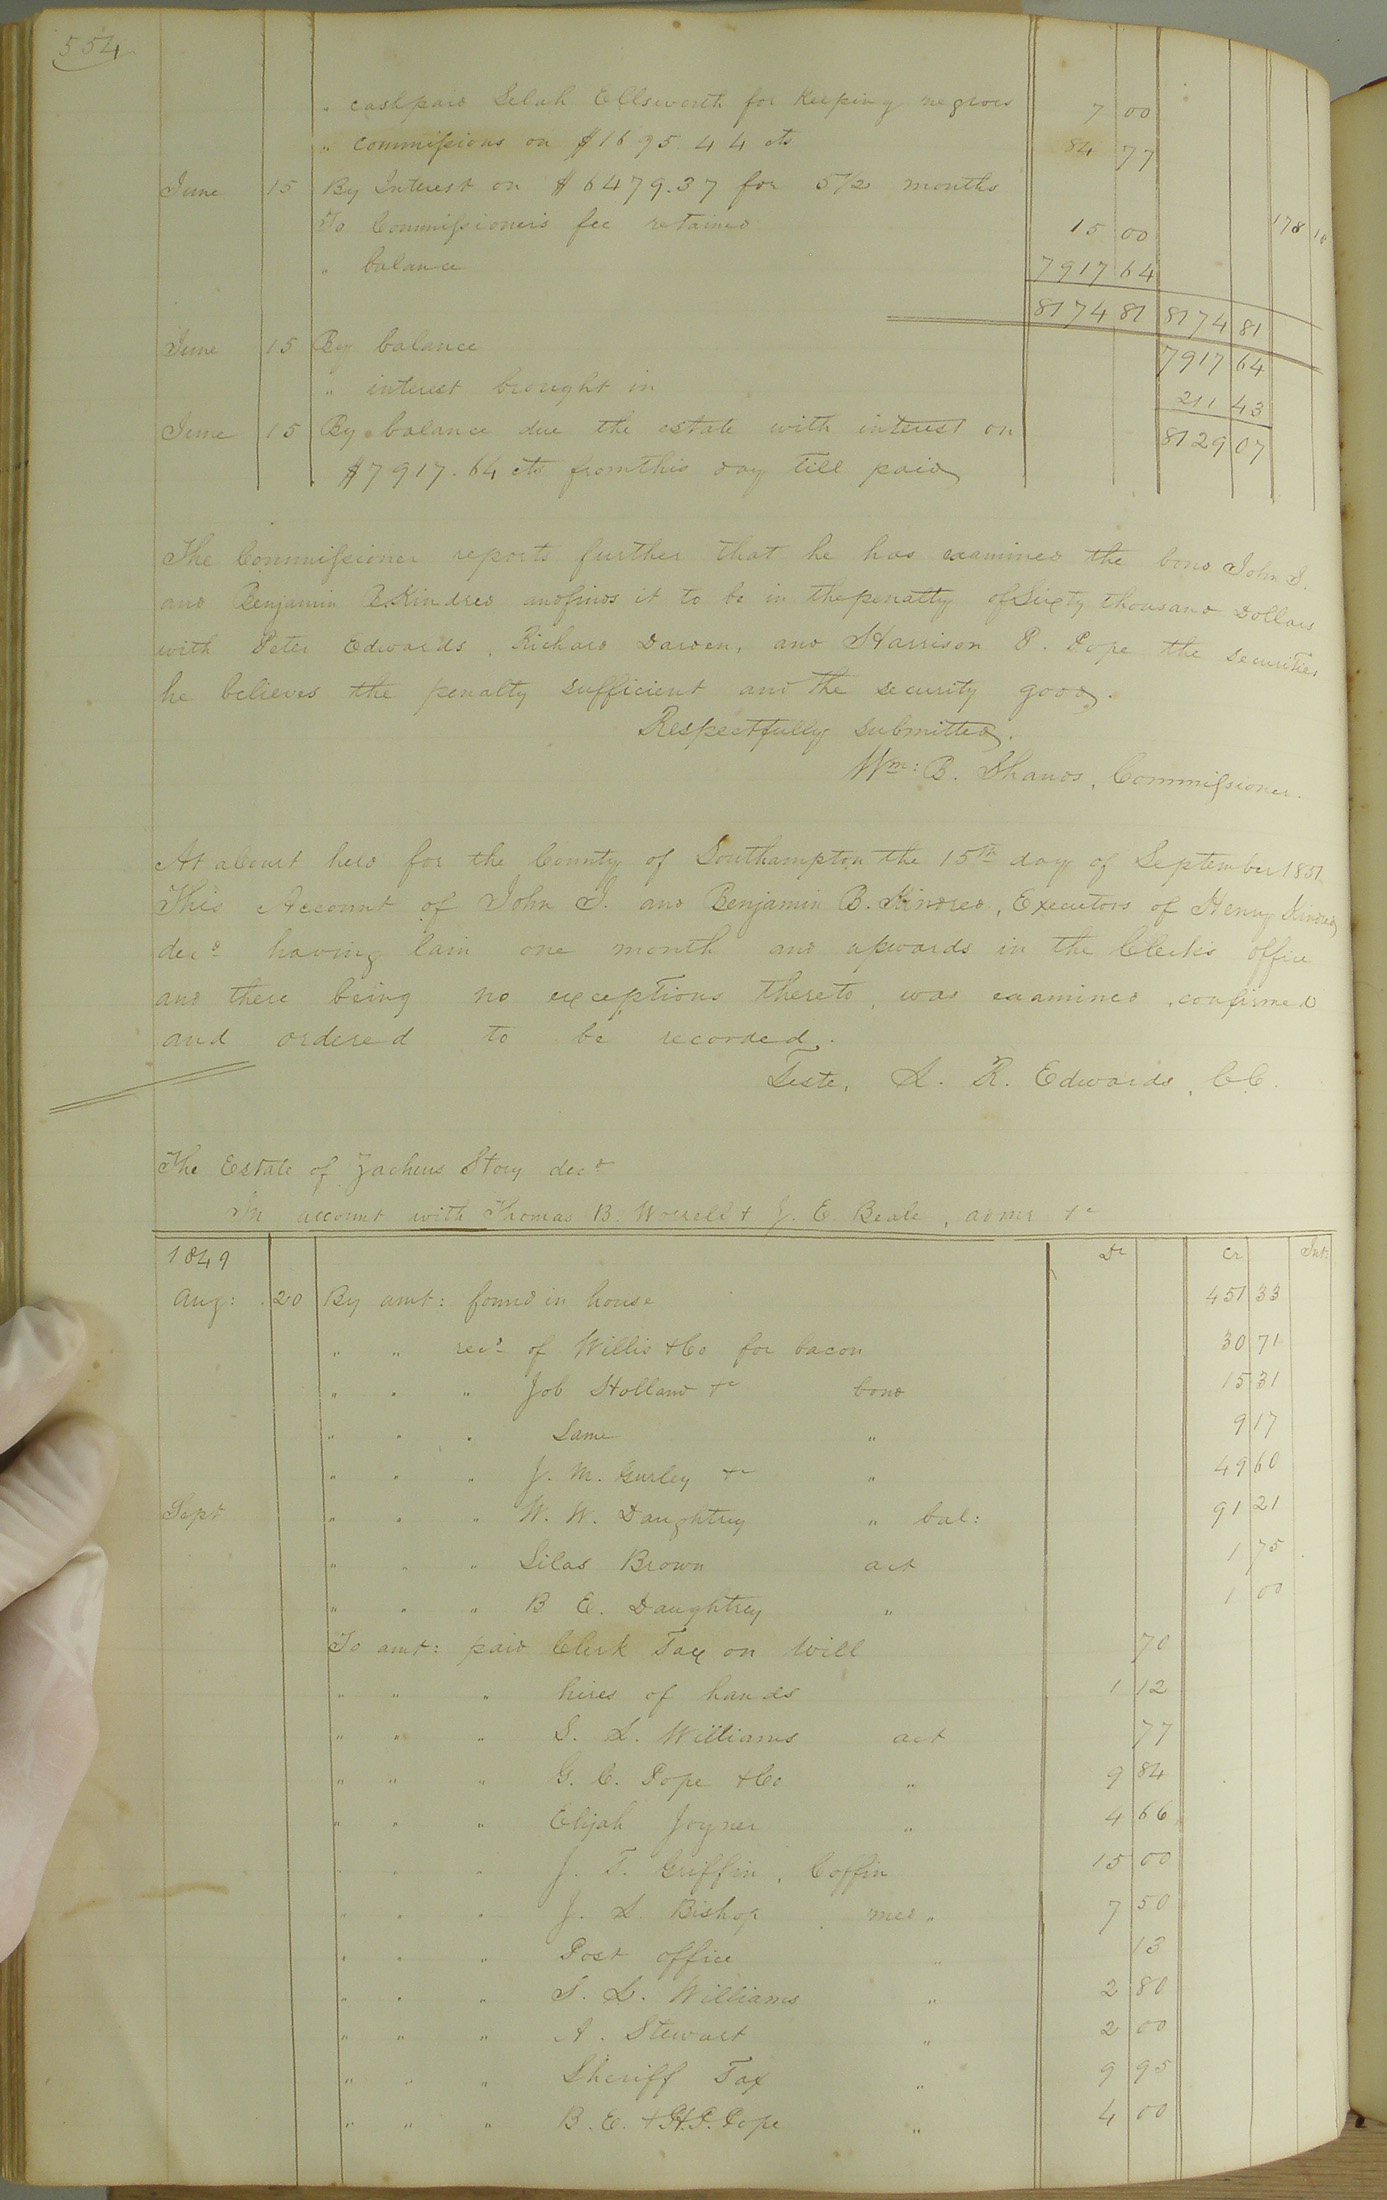 554
" cash paid Selah Ellsworth for keeping negroes 7 00
" commissions on $1695.44 cts 84 77
June 15 By Interest on $6479.37 for 5 1/2 months 178 18
To Commissioner's fee retained 15 00
" balance 7917 64
8174 81 8174 81
June 15 By balance 7917 64
" interest brought in 211 43
June 15 By balance due the estate with interest on 8129 07
$7917.64 cts from this day till paid
The Commissioner reports further that he has examined the bond John J.
and Benjamin B. Kindred and finds it to be in the penalty of Sixty thousand Dollars
with Peter Edwards, Richard Darden, and Harrison P. Pope the securities
he believes the penalty sufficient and the security good.
Respectfully submitted.
Wm: B. Shands, Commissioner.
At a Court held for the County of Southampton the 15th day of September 1851
This Account of John J. and Benjamin B. Kindred, Executors of Henry Kindred
decd having lain one month and upwards in the Clerk's office
and there being no exceptions thereto, was examined, confirmed
and ordered to be recorded.
Teste, L. R. Edwards, C.C.
The Estate of Zacheus Story decd
In account with Thomas B. Worrell & J. E. Beale, admr &c
1849 Dr Cr Int:
Aug: 20 By amt: found in house 451 33
" " recd of Willis & Co for bacon 30 71
" " " Job Holland &c bond 15 31
" " " Same " 9 17
" " " J. M. Gurley &c " 49 60
Sept " " " W. W. Daughtrey " bal: 91 21
" " " Silas Brown act 1 75
" " " B E. Daughtrey " 1 00
To amt: paid Clerk Tax on Will 70
" " " hires of hands 1 12
" " " S. L. Williams act 77
" " " G. C. Pope & Co " 9 84
" " " Elijah Joyner " 4 66
" " " J. T. Griffin, Coffin 15 00
" " " J. L. Bishop, med " 7 50
" " " Post office " 13
" " " T. L. Williams " 2 80
" " " A. Stewart " 2 00
" " " Sheriff Tax " 9 95
" " " B. E. & H. P. Pope " 4 00